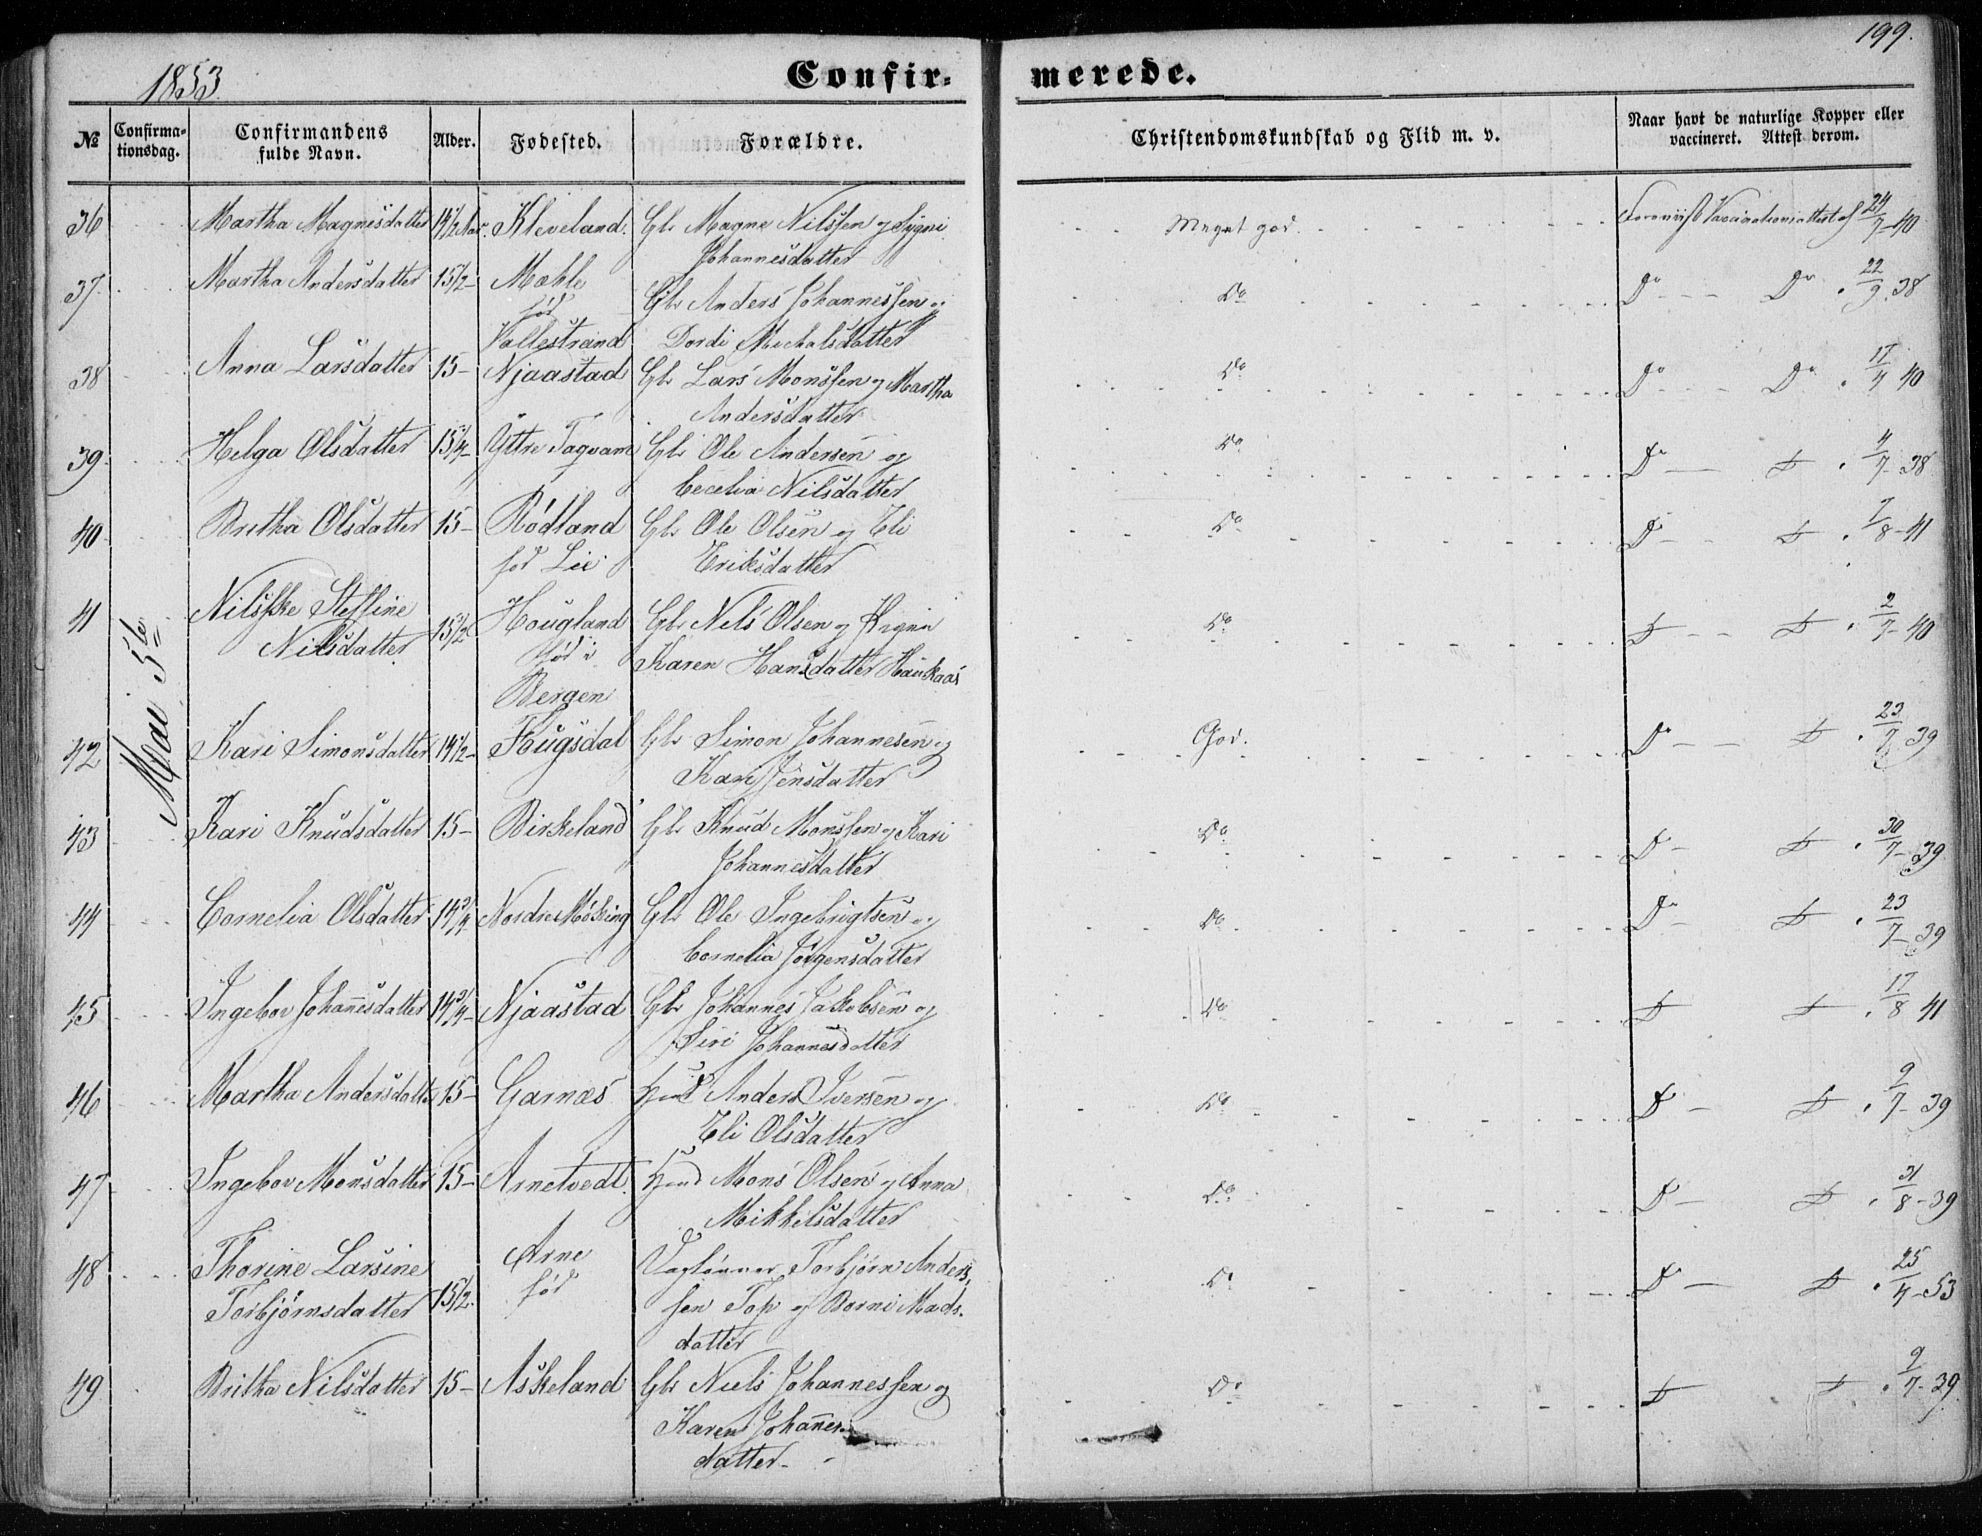 199.
1853.
Confir-
merede.
№
Confirma-
tionsdag.
Confirmandens
fulde Navn.
Alder.
Fødested.
Forældre.
Christendomskundskab og Flid m. v.
Naar havt de naturlige Kopper eller
vaccineret. Attest derom.
Mai 5te
36 Martha Magnesdatter 14 1/2 Aar. Kleveland. Gbr Magne Nilssen og Sygni Meget god. Foreviist Vaccinationsattest af 24/7-40
Johannesdatter
37. Martha Andersdatter 15 1/2- Mæhle
Gbr Anders Johannessen og Do Do Do . 22/9. 38
fød
Vallestrand Dordi Michalsdatter
38 Anna Larsdatter 15- Njaastad Gbr Lars Monssen og Martha Do Do Do . 17/4 40
Andersdatter
39. Helga Olsdatter 15 1/4- Yttre Tagvam Gbr Ole Andersen og Do Do D . 4/7. 38
Cecelia Nilsdatter
40 Britha Olsdatter 15- Rødland Gbr Ole Olsen og Eli Do D D . 7/8-41
fød Lie Eriksdatter
41 Nilsske Steffine Hougland Gbr Nels Olsen og Do D D . 2/7-40
Nilsdatter. 15 1/2 fød i Karen Hansdatter Haukaas
Bergen
42 Kari Simonsdatter 14 1/2- Flugsdal Gbr Simon Johannesen og God. Do D . 23/7. 39
Kari Jensdatter
43 Kari Knudsdatter 15- Birkeland Gbr Knud Monssen og Kari Do D D . 30/7-39
Johannesdatter
44 Cornelia Olsdatter 14 3/4 Nordre Møking Gbr Ole Ingebrigtsen og Do Do D . 23/7-39
Cornelia Jørgensdatter
45 Ingebor Johannesdatter 14 3/4 Njaastad Gbr Johannes Jakobsen og Do D D . 17/8 41
Siri Johannesdatter
46 Martha Andersdatter 15- Garnæs Hmd Anders Iversen og Do D D . 9/7-39
Eli Olsdatter
47 Ingebor Monsdatter 15- Arnetvedt. Hmd Mons Olsen og Anna Do D D . 31/8-39
Mikkelsdatter
48 Thorine Larsine Arne Daglønner Torbjørn Anders- Do D D . 25/4-53
Torbjørnsdatter 15 1/2. fød sen Top og Borni Mads-
datter
49 Britha Nilsdatter 15- Askeland Gbr Niels Johannessen og Do D D . 9/7-39
Karen Johannes-
datter-